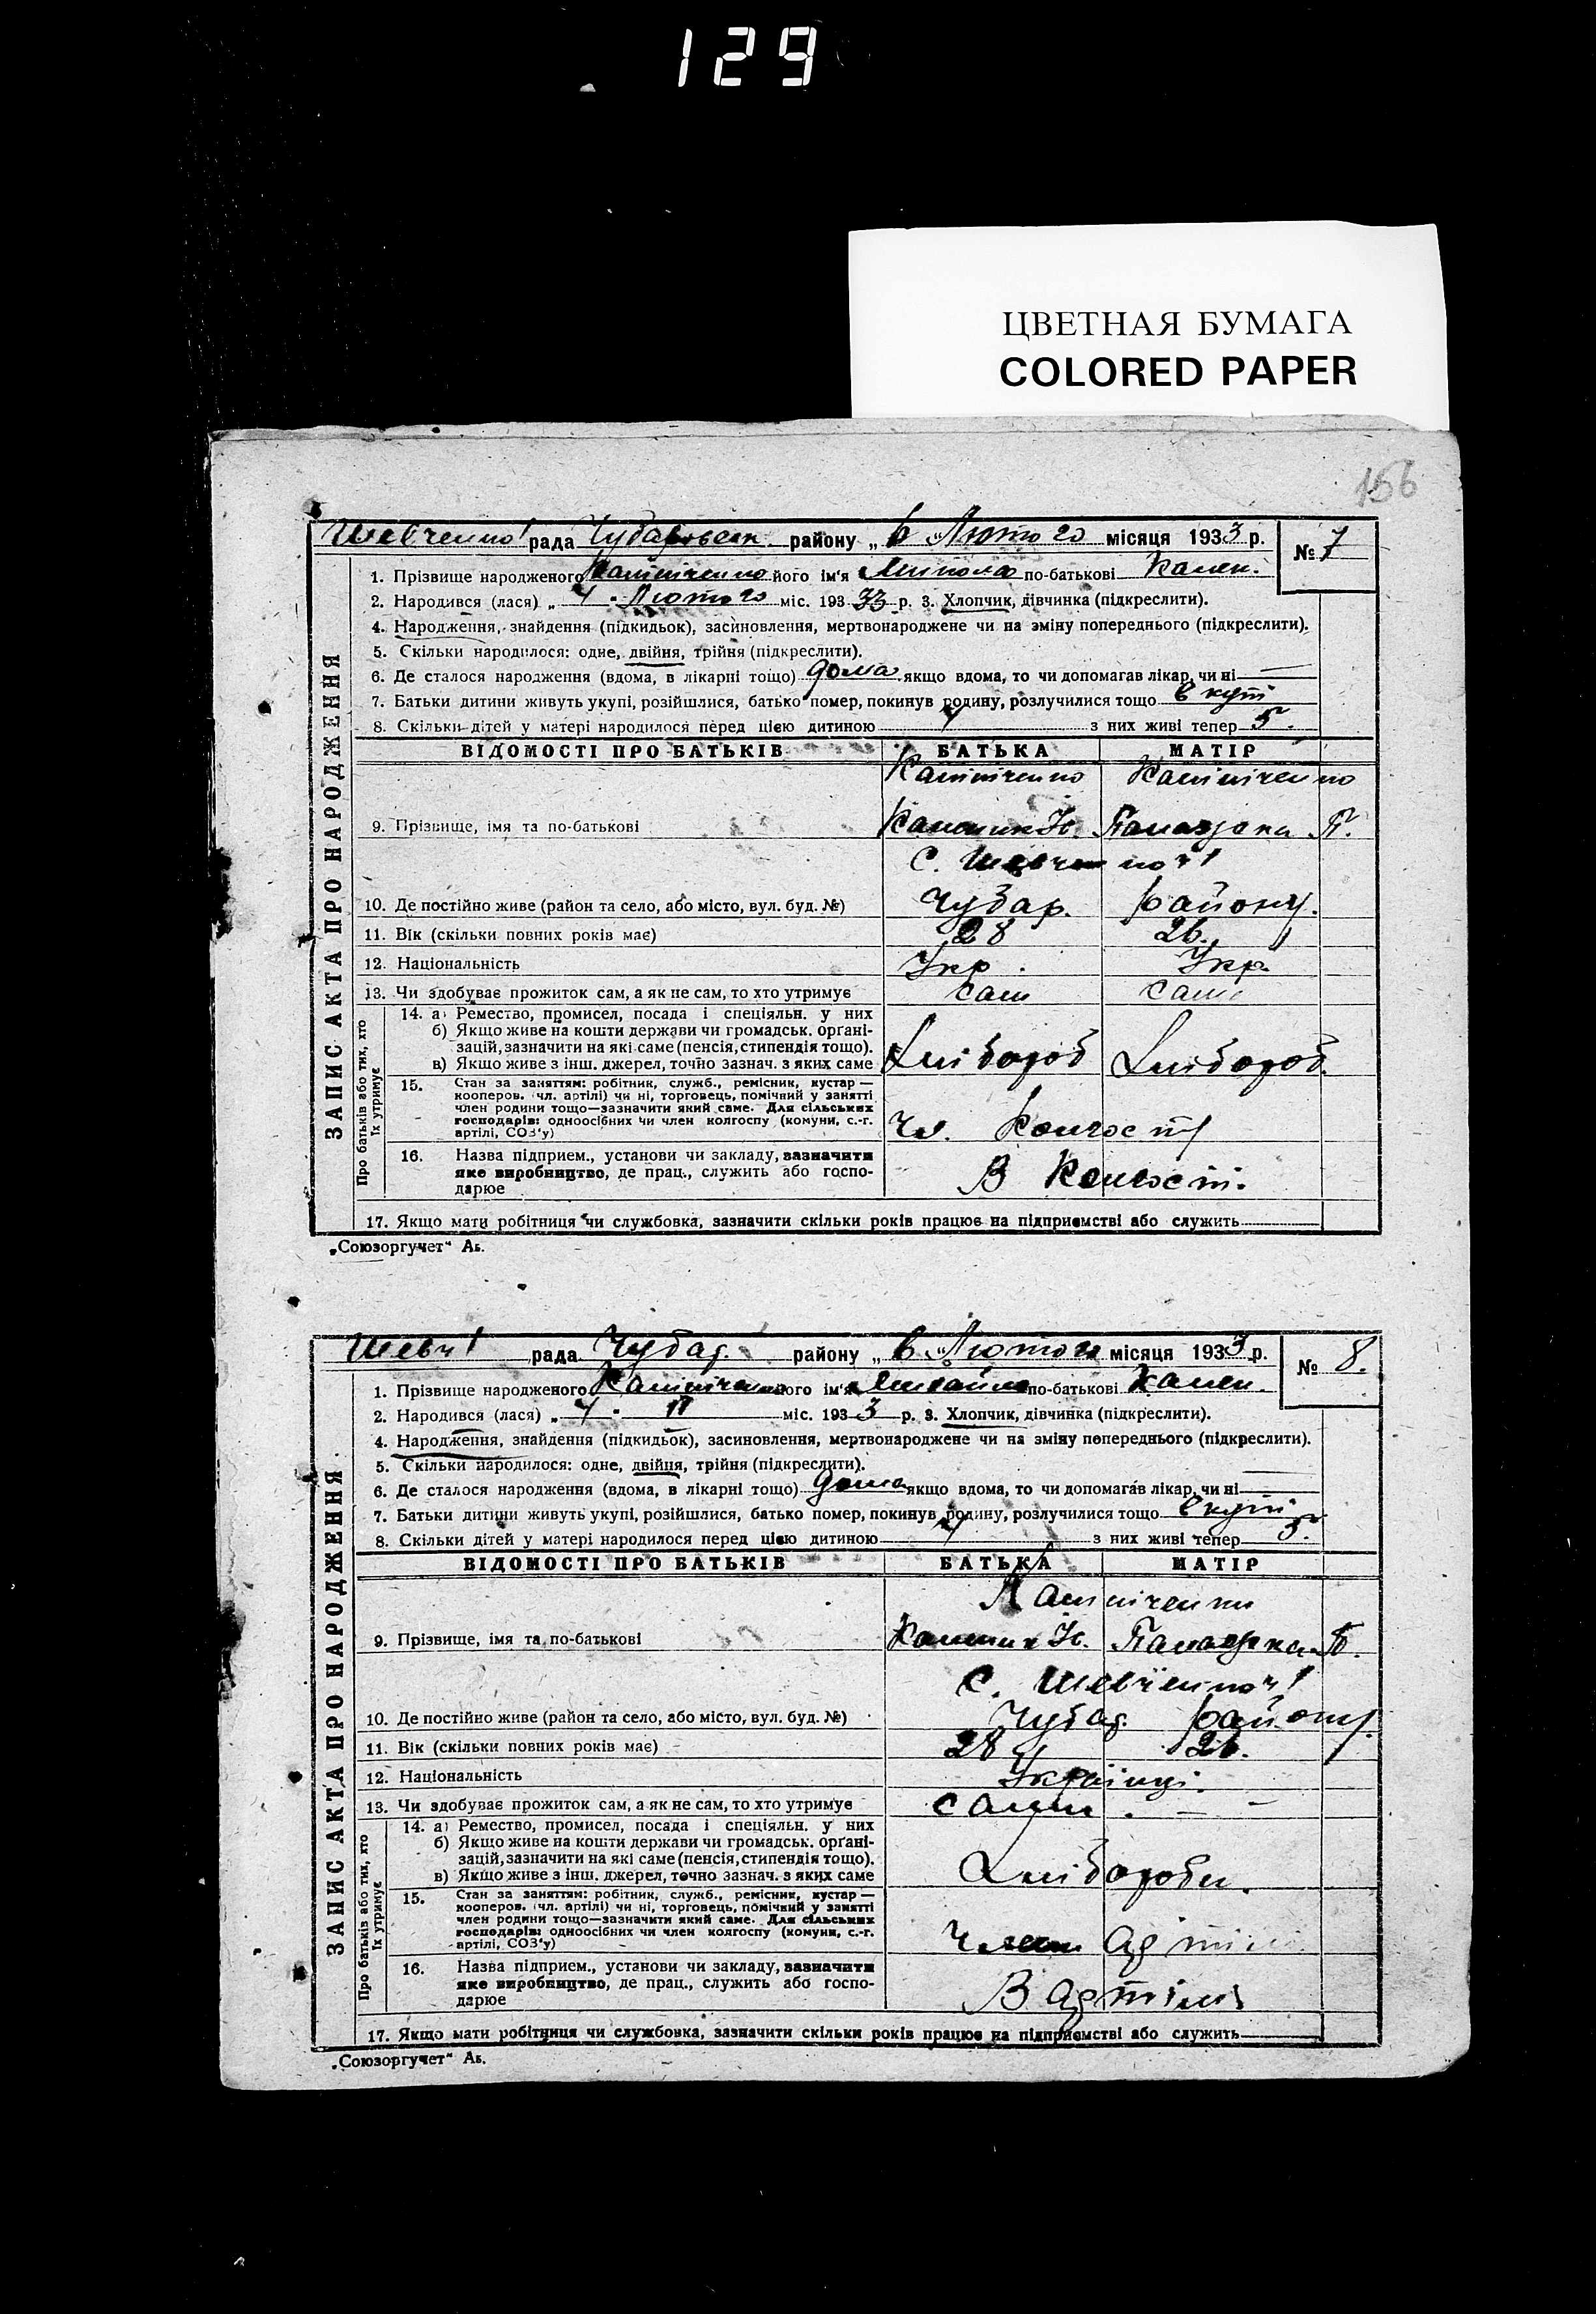 129
ЦВЕТНАЯ БУМАГА
COLORED PAPER
156
рада Чубаровськ. району „6" Лютого місяця 1933 р. № 7
1. Прізвище народженого його ім'я Микола по-батькові Кален.
2. Народився (лася) „ 4 " Лютого міс. 193 33 р. 3. Хлопчик, дівчинка (підкреслити).
4. Народження, знайдення (підкидьок), засиновлення, мертвонароджене чи на зміну попереднього (підкреслити).
5. Скільки народилося: одне, двійня, трійня (підкреслити).
6. Де сталося народження (вдома, в лікарні тощо) дома якщо вдома, то чи допомагав лікар, чи ні —
7. Батьки дитини живуть укупі, розійшлися, батько помер, покинув родину, розлучилися тощо в купі
8. Скільки дітей у матері народилося перед цією дитиною 4 з них живі тепер 5.
ЗАПИС АКТА ПРО НАРОДЖЕННЯ
ВІДОМОСТІ ПРО БАТЬКІВ БАТЬКА МАТІР
9. Прізвище, імя та по-батькові
С.
10. Де постійно живе (район та село, або місто, вул. буд. №) Чубар. району.
11. Вік (скільки повних років має) 28 26.
12. Національність Укр. Укр.
13. Чи здобуває прожиток сам, а як не сам, то хто утримує сам сама
Про батьків або тих, хто їх утримує
14. а) Ремество, промисел, посада і спеціяльн. у них
б) Якщо живе на кошти держави чи громадськ. орґані-
зацій, зазначити на які саме (пенсія, стипендія тощо).
в) Якщо живе з інш. джерел, точно зазнач. з яких саме Хлібороб Хлібороб.
15. Стан за заняттям: робітник, служб., ремісник, кустар —
кооперов. (чл. артілі) чи ні, торговець, помічний у занятті
член родини тощо—зазначити який саме. Для сільських
господарів: одноосібних чи член колгоспу (комуни, с.-г.
артілі, СОЗ'у) Чл.
16. Назва підприєм., установи чи закладу, зазначити
яке виробництво, де прац., служить або госпо-
дарює В
17. Якщо мати робітниця чи службовка, зазначити скільки років працює на підприємстві або служить
„Союзоргучет" Аь.
Шевч рада Чубар. району „6" Лютого місяця 1933 р. № 8.
1. Прізвище народженого його ім'я Михайло по-батькові Кален.
2. Народився (лася) „ 4 " II міс. 193 3 р. 3. Хлопчик, дівчинка (підкреслити).
4. Народження, знайдення (підкидьок), засиновлення, мертвонароджене чи на зміну попереднього (підкреслити).
5. Скільки народилося: одне, двійня, трійня (підкреслити).
6. Де сталося народження (вдома, в лікарні тощо) дома якщо вдома, то чи допомагав лікар, чи ні —
7. Батьки дитини живуть укупі, розійшлися, батько помер, покинув родину, розлучилися тощо в купі
8. Скільки дітей у матері народилося перед цією дитиною 4 з них живі тепер 5.
ЗАПИС АКТА ПРО НАРОДЖЕННЯ
ВІДОМОСТІ ПРО БАТЬКІВ БАТЬКА МАТІР
9. Прізвище, імя та по-батькові
С.
10. Де постійно живе (район та село, або місто, вул. буд. №) Чубар. району.
11. Вік (скільки повних років має) 28 26.
12. Національність Українці.
13. Чи здобуває прожиток сам, а як не сам, то хто утримує сами. — —
Про батьків або тих, хто їх утримує
14. а) Ремество, промисел, посада і спеціяльн. у них
б) Якщо живе на кошти держави чи громадськ. орґані-
зацій, зазначити на які саме (пенсія, стипендія тощо).
в) Якщо живе з інш. джерел, точно зазнач. з яких саме Хлібороби.
15. Стан за заняттям: робітник, служб., ремісник, кустар —
кооперов. (чл. артілі) чи ні, торговець, помічний у занятті
член родини тощо—зазначити який саме. Для сільських
господарів: одноосібних чи член колгоспу (комуни, с.-г.
артілі, СОЗ'у) Члени артілі
16. Назва підприєм., установи чи закладу, зазначити
яке виробництво, де прац., служить або госпо-
дарює В артілі
17. Якщо мати робітниця чи службовка, зазначити скільки років працює на підприємстві або служить
„Союзоргучет" Аь.